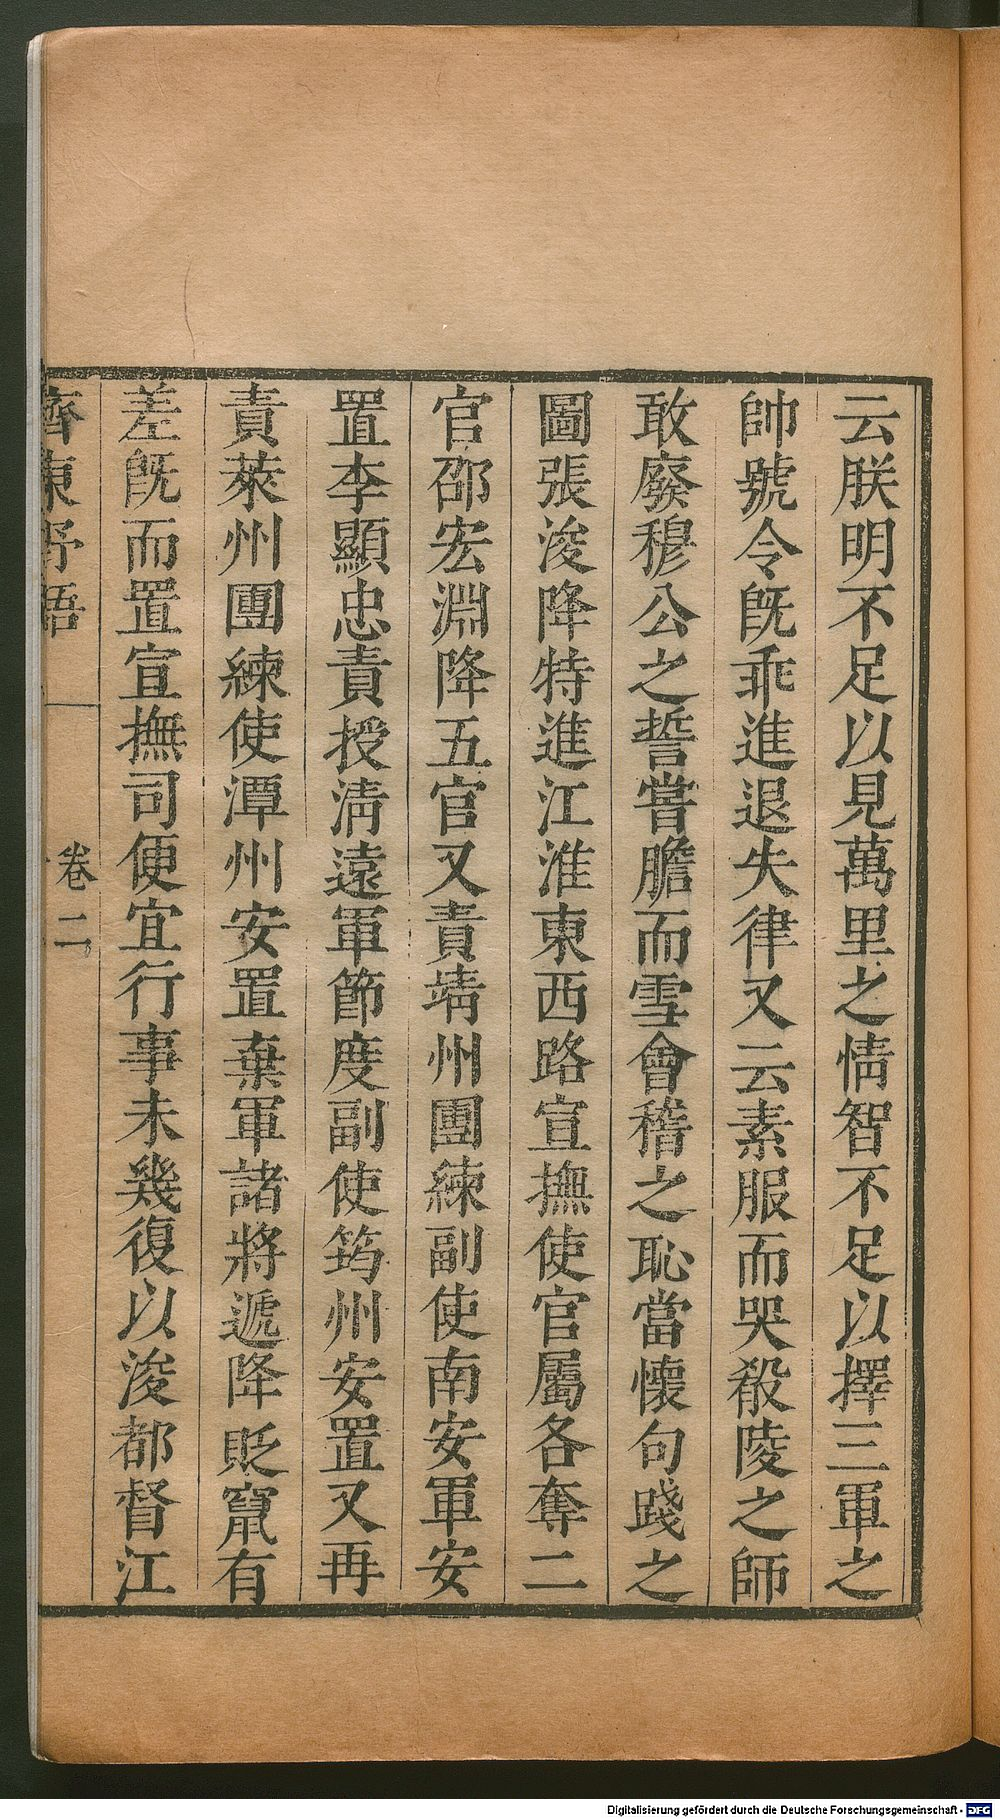 云朕明不足以見萬里之情智不足以擇三軍之
帥號令旣乖進退失律又云素服而哭殽陵之師
敢廢穆公之誓嘗膽而雪會稽之恥當懷句踐之
圖張浚降特進江淮東西路宣撫使官屬各奪二
官邵宏淵降五官又責靖州團練副使南安軍安
置李顯忠責授淸遠軍節度副使筠州安置又再
責萊州團練使潭州安置棄軍諸將遞降貶竄有
差旣而置宣撫司便宜行事未幾復以浚都督江
齊東野語 卷二
Digitalisierung gefördert durch die Deutsche Forschungsgemeinschaft - DFG